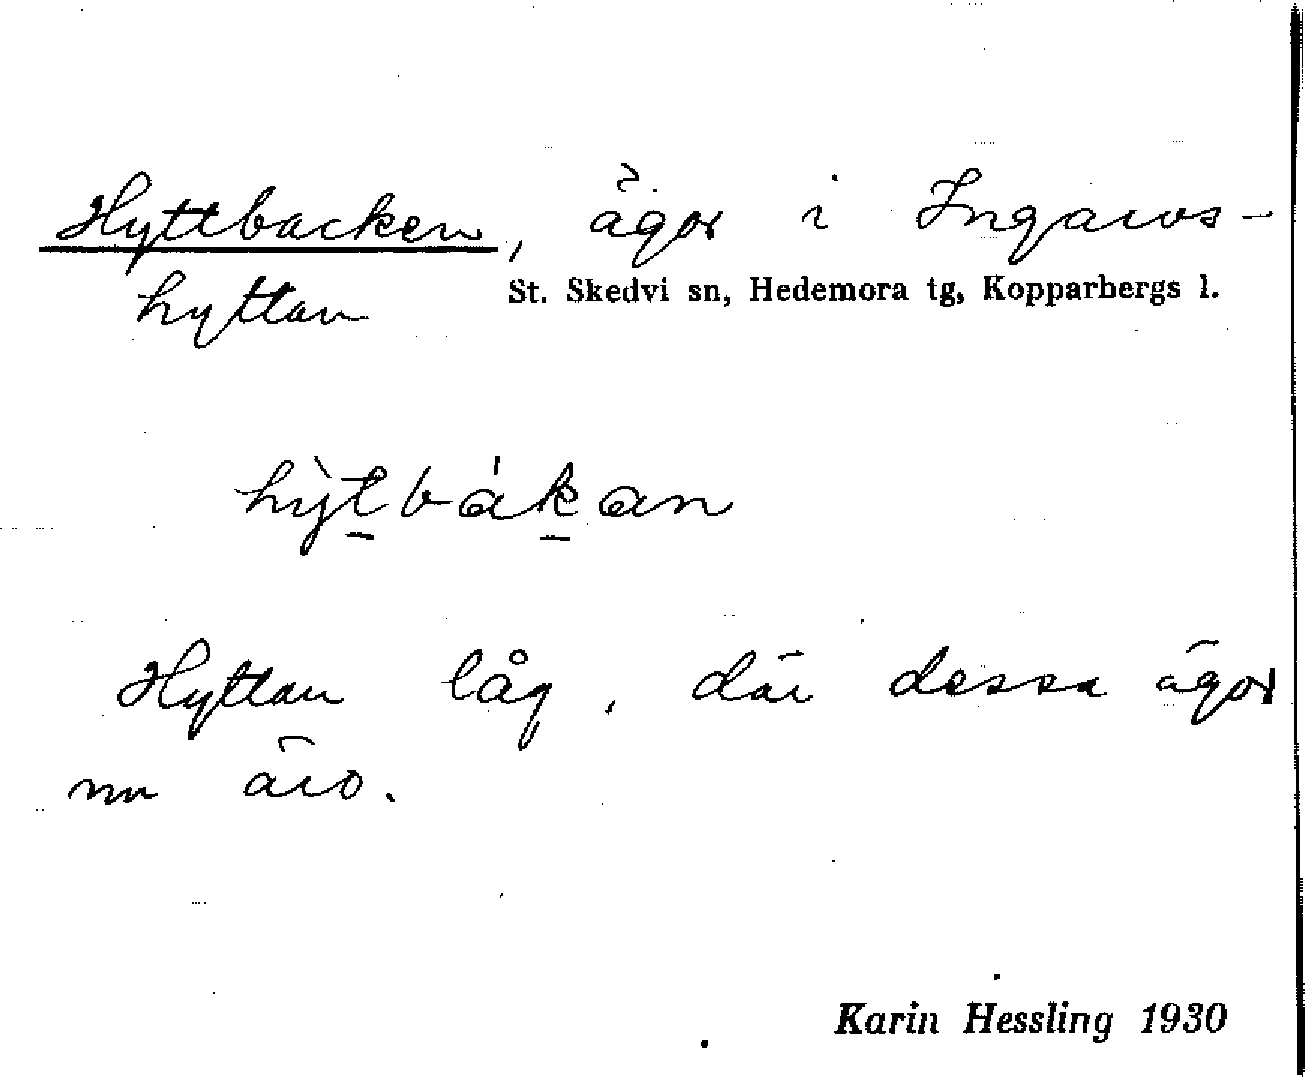 Hyttbacken, ägor i Ingarvs-
hyttan
St. Skedvi sn, Hedemora tg, Kopparbergs l.
hỳt̲bák̲an
Hyttan låg, där dessa ägor
nu äro.
Karin Hessling 1930